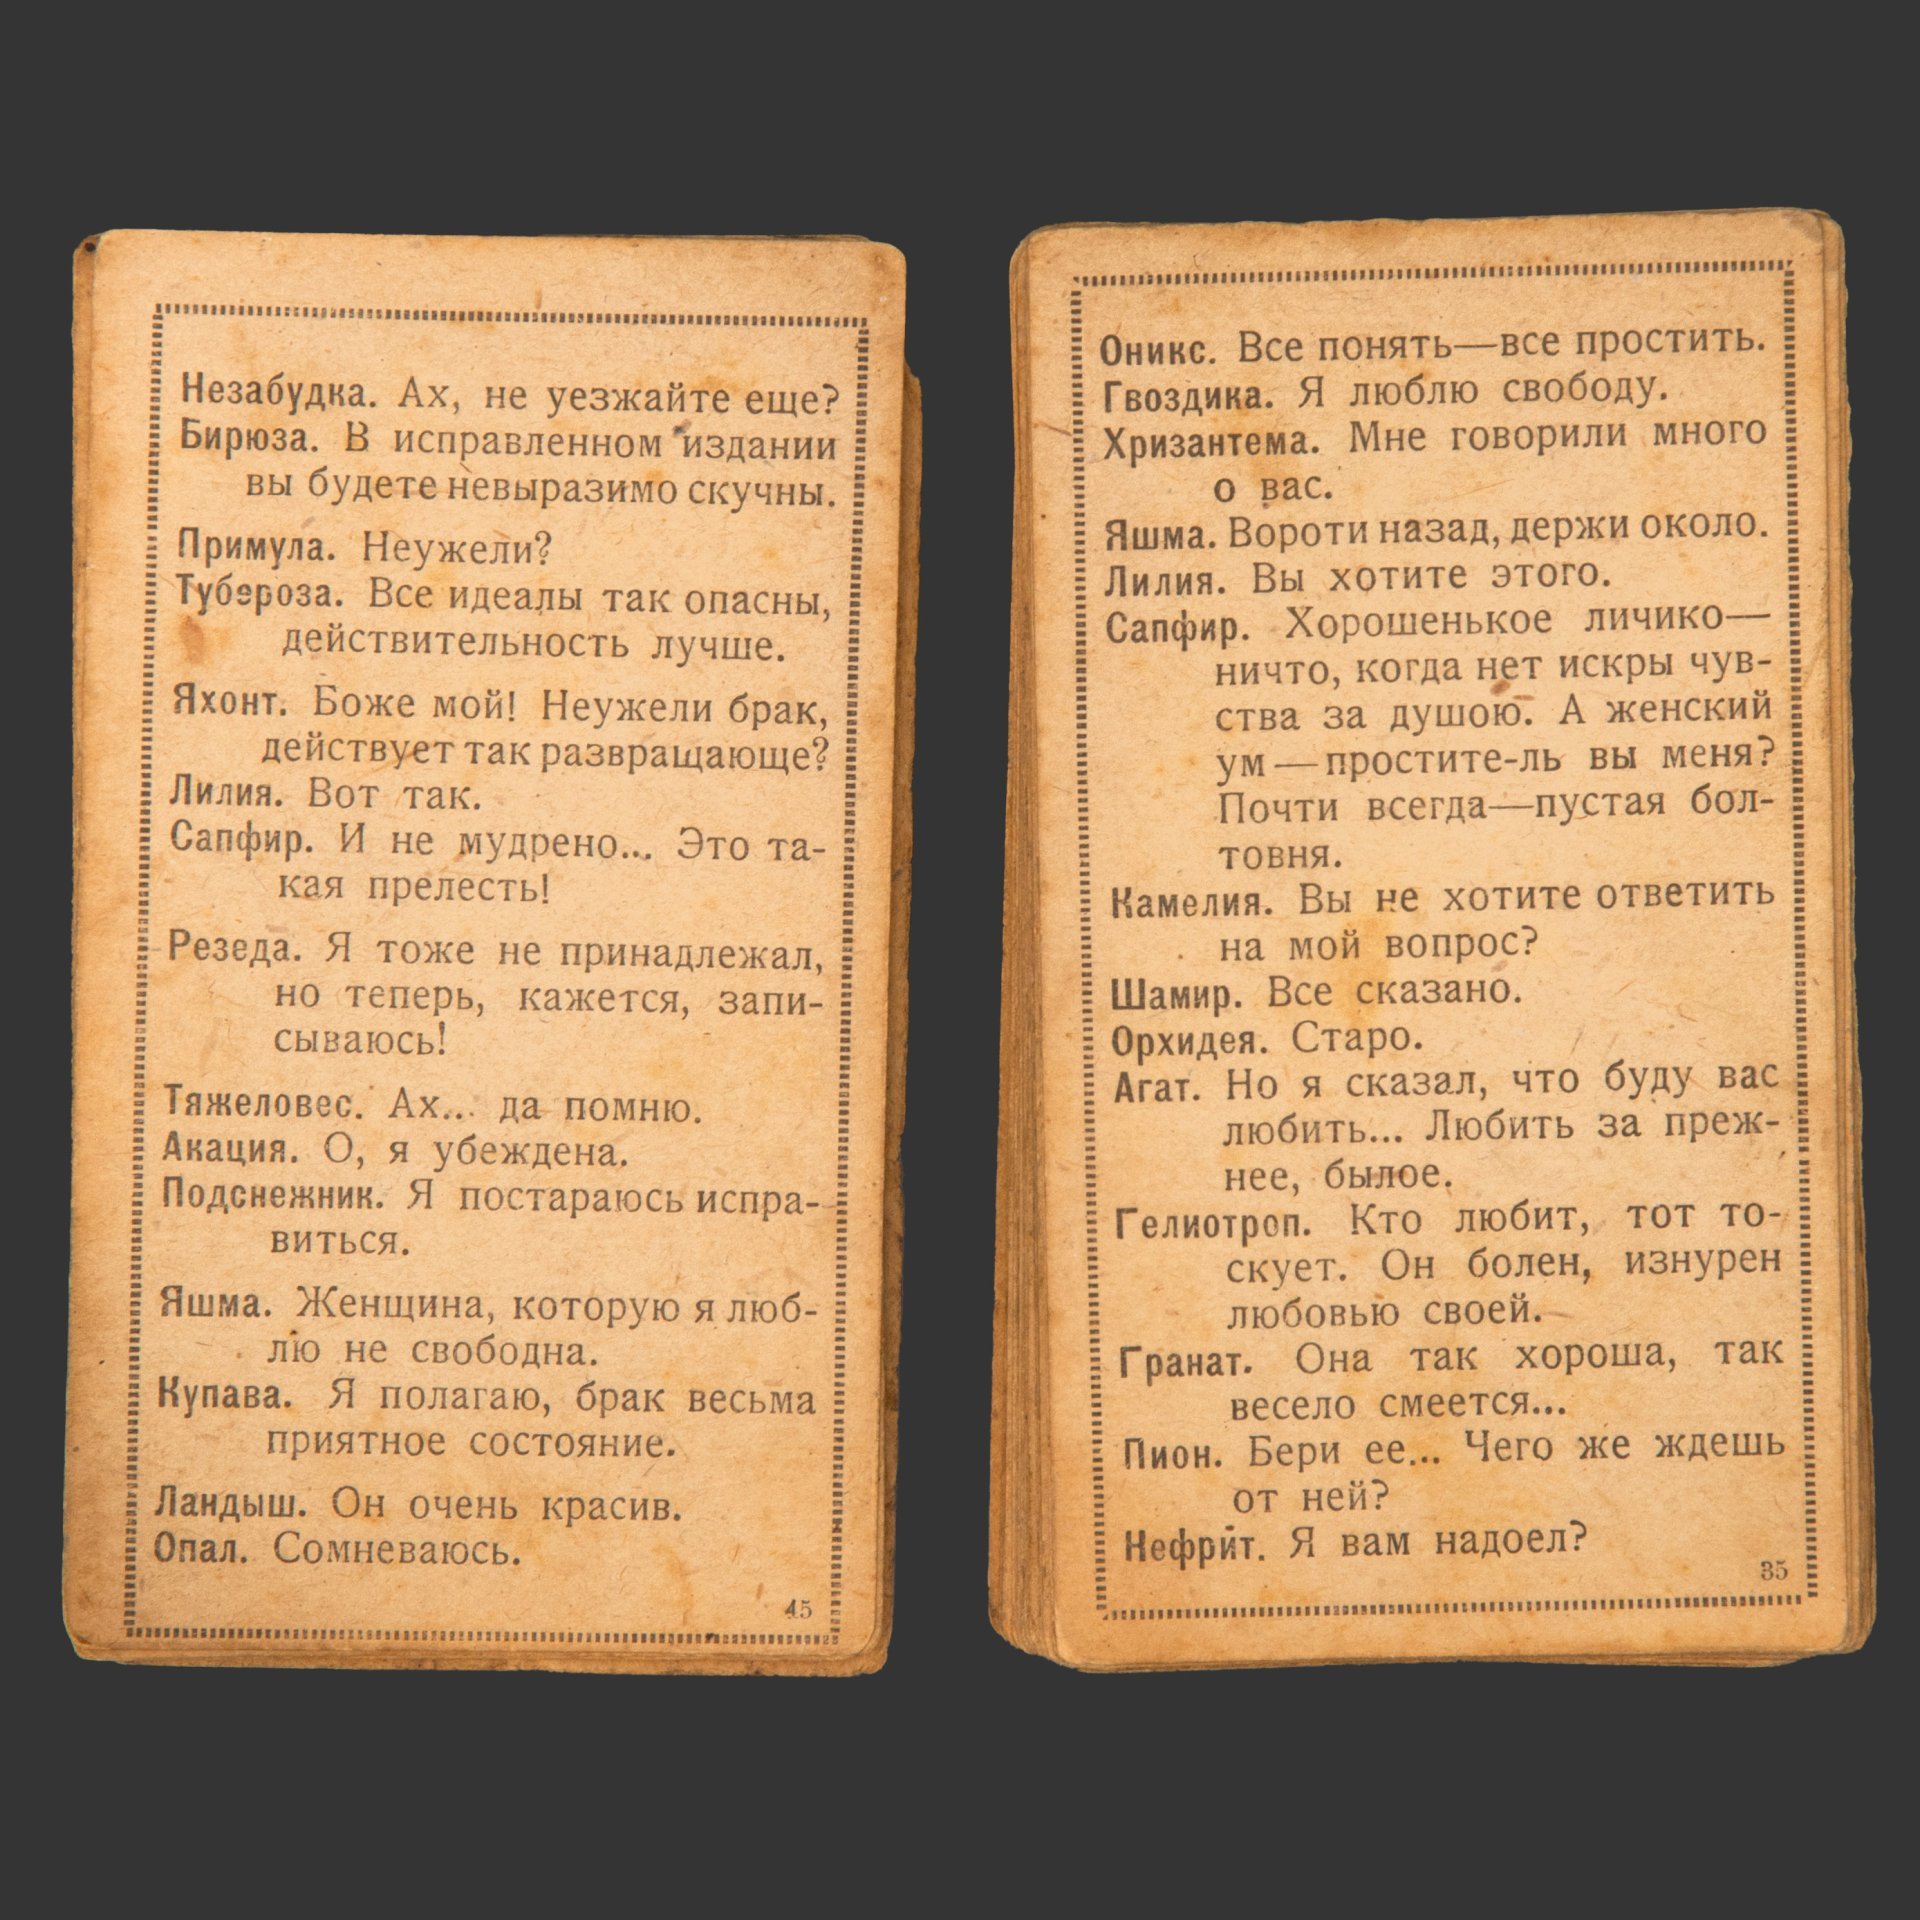 Незабудка. Ах, не уезжайте еще?
Бирюза. В исправленном издании
вы будете невыразимо скучны.
Примула. Неужели?
Тубероза. Все идеалы так опасны,
действительность лучше.
Яхонт. Боже мой! Неужели брак,
действует так развращающе?
Лилия. Вот так.
Сапфир. И не мудрено... Это та-
кая прелесть!
Резеда. Я тоже не принадлежал,
но теперь, кажется, запи-
сываюсь!
Тяжеловес. Ах... да помню.
Акация. О, я убеждена.
Подснежник. Я постараюсь испра-
виться.
Яшма. Женщина, которую я люб-
лю не свободна.
Купава. Я полагаю, брак весьма
приятное состояние.
Ландыш. Он очень красив.
Опал. Сомневаюсь.
45
Оникс. Все понять—все простить.
Гвоздика. Я люблю свободу.
Хризантема. Мне говорили много
о вас.
Яшма. Вороти назад, держи около.
Лилия. Вы хотите этого.
Сапфир. Хорошенькое личико—
ничто, когда нет искры чув-
ства за душою. А женский
ум—простите-ль вы меня?
Почти всегда—пустая бол-
товня.
Камелия. Вы не хотите ответить
на мой вопрос?
Шамир. Все сказано.
Орхидея. Старо.
Агат. Но я сказал, что буду вас
любить... Любить за преж-
нее, былое.
Гелиотроп. Кто любит, тот то-
скует. Он болен, изнурен
любовью своей.
Гранат. Она так хороша, так
весело смеется...
Пион. Бери ее... Чего же ждешь
от ней?
Нефрит. Я вам надоел?
35